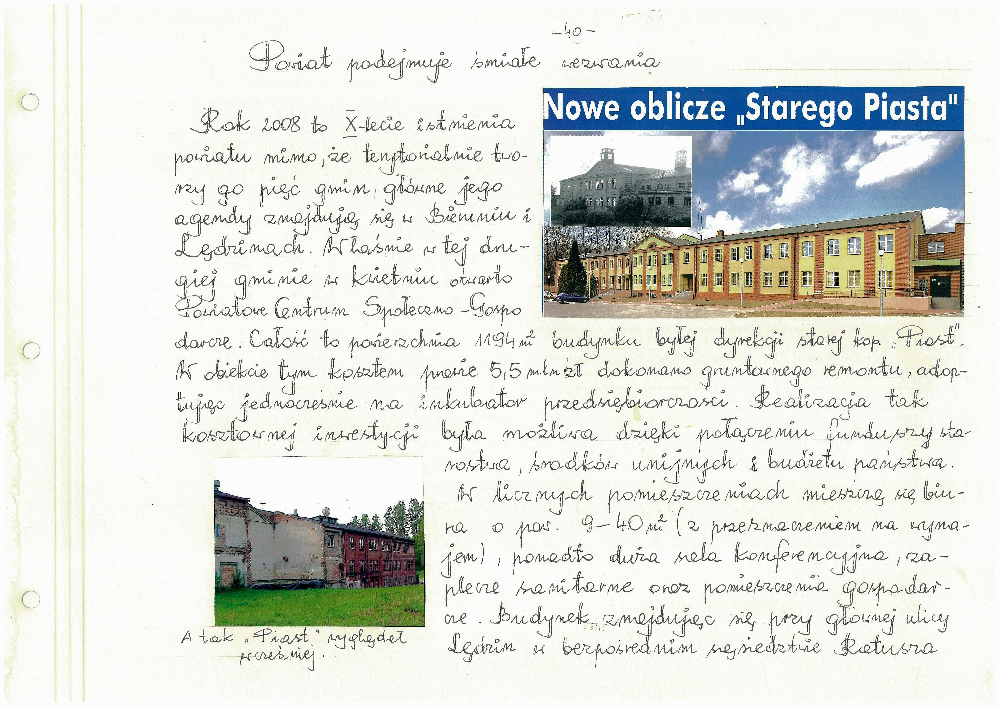 -40-
Powiat podejmuje śmiałe wezwania
Nowe oblicze „Starego Piasta"
Rok 2008 to X-lecie istnienia
powiatu mimo, że terytorialnie two-
rzy go pięć gmin, główne jego
agendy znajdują się w Bieruniu i
Lędzinach. Właśnie w tej dru-
giej gminie w kwietniu otwarto
Powiatowe Centrum Społeczno-Gospo
darcze. Całość to powierzchnia 1194 m² budynku byłej dyrekcji starej kop. „Piast".
W obiekcie tym kosztem prawie 5,5 mln zł dokonano gruntownego remontu, adop-
tując jednocześnie na inkubator przedsiębiorczości. Realizacja tak
kosztownej inwestycji była możliwa dzięki połączeniu funduszy sta-
rostwa, środków unijnych i budżetu państwa.
W licznych pomieszczeniach mieszczą się biu-
ra o pow. 9-40 m² (z przeznaczeniem na wyna-
jem), ponadto duża sala konferencyjna, za-
plecze sanitarne oraz pomieszczenia gospodar-
cze. Budynek, znajdując się przy głównej ulicy
Lędzin w bezpośrednim sąsiedztwie Ratusza
A tak „Piast" wyglądał
wcześniej.